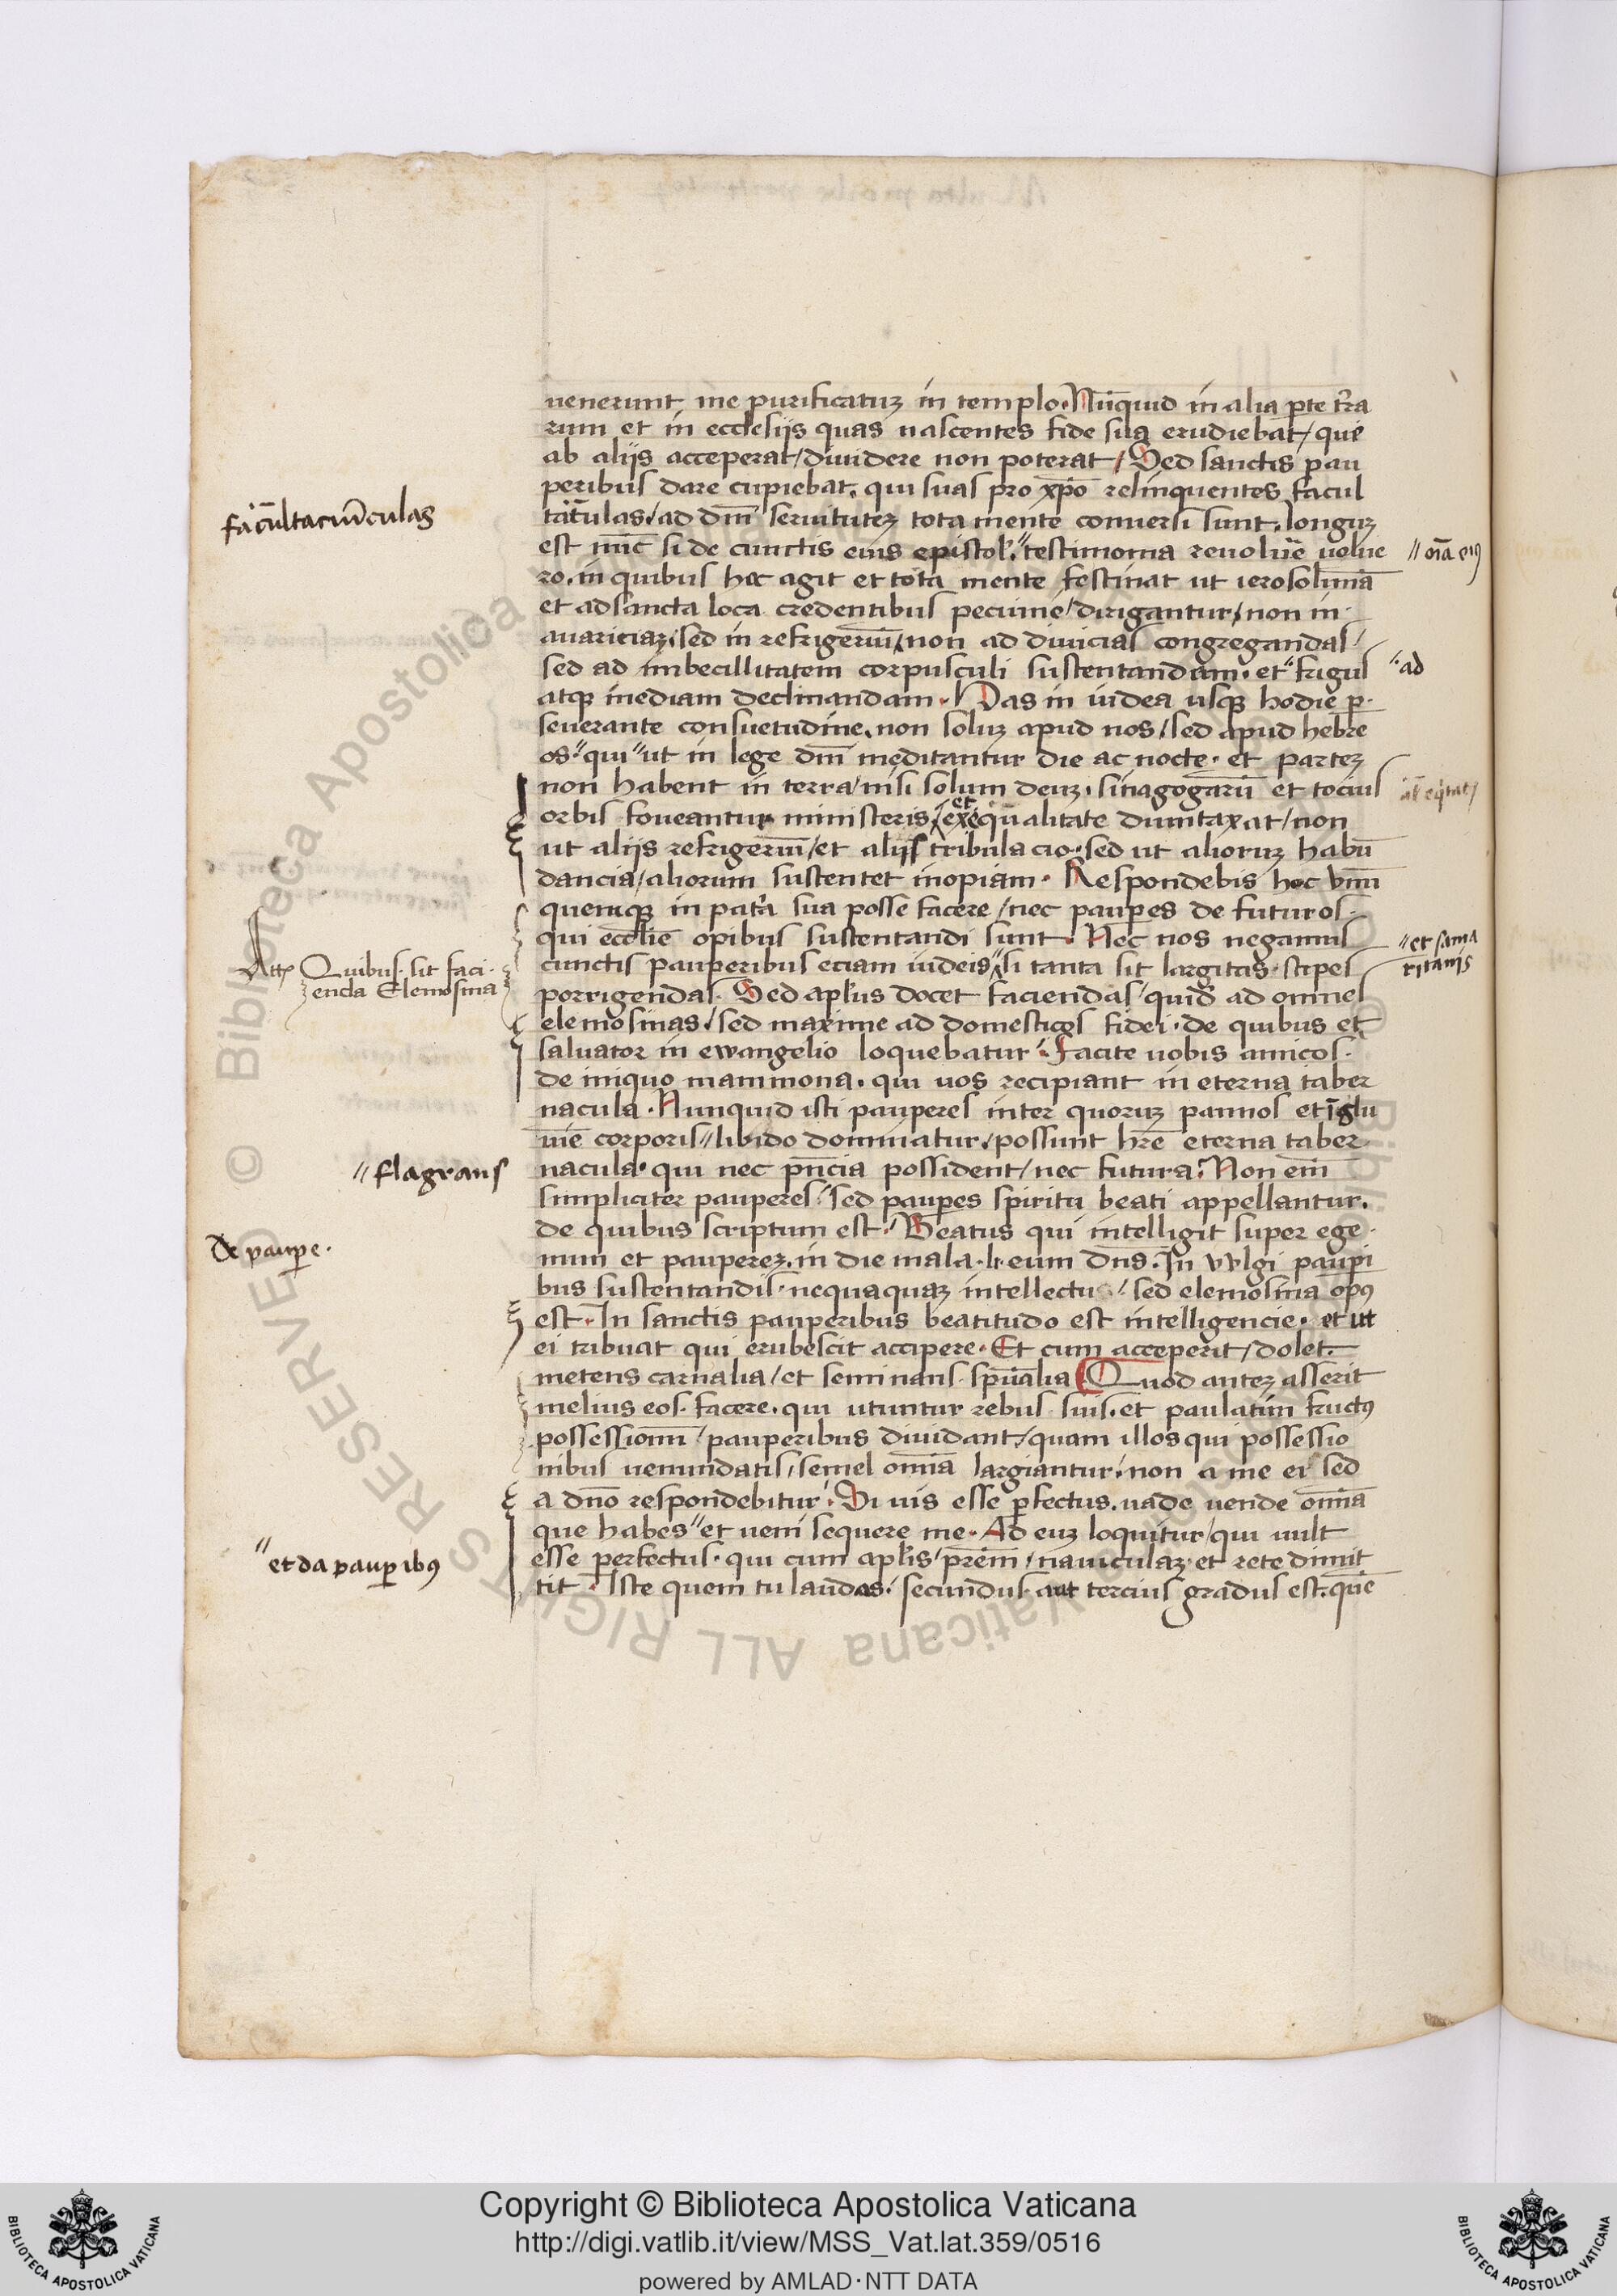 uenerunt me purificatuȝ in templo. Nūquid in alia ꝑte tr̄a
rum et in ecclesijs quas nascentes fide sua erudiebat / que
ab alijs acceperat / diuidere non poterat / Sed sanctis pau
peribus dare cupiebat. qui suas pro xp̄o relinquentes facul
tatulas / ad dn̄i seruituteȝ tota mente conuersi sunt. longuȝ
est nūc si de cunctis eius epistol̄. " testimonia reuolūe uolue
ro. in quibus hoc agit et tota mente festinat ut ierosolimā
et ad sancta loca credentibus pecunie / dirigantur / non in
auariciaȝ / sed in refrigeriū / non ad diuicias congregandas /
sed ad imbecillitatem corpusculi sustentandam. et " frigus
atqȝ inediam declinandam. Has in iudea usqȝ hodie ꝑ
seuerante consuetudine. non soluȝ apud nos / sed apud hebre
os. " qui " ut in lege dn̄i meditantur die ac nocte. et parteȝ
non habent in terra / nisi solum deuȝ. sinagogarū et tocius
orbis foueantur ministeris / et exequalitate dumtaxat / non
ut alijs refrigeriū / et alijs tribulacio. sed ut alioruȝ habū
dancia / aliorum sustentet inopiam. Respondebis hoc vnū
quemqȝ in pat̄a sua posse facere / nec pauꝑes de futuros
qui eccl̄ie opibus sustentandi sunt. Nec nos negamus
cunctis pauperibus eciam iudeis " si tanta sit largitas. stipes
porrigendas. Sed apl̄us docet faciendas / quid̄ ad omnes
elemosinas / sed maxime ad domesticos fidei. de quibus et
saluator in ewangelio loquebatur. Facite uobis amicos.
de iniquo mammona. qui uos recipiant in eterna taber
nacula. Nunquid isti pauperes inter quoruȝ pannos et īglu
uiē corporis " libido dominatur / possunt hr̄e eterna taber
nacula. qui nec pn̄cia possident / nec futura. Non em̄
simpliciter pauperes / sed pauꝑes spiritu beati appellantur.
de quibus scriptum est. Beatus qui intelligit super ege
num et paupereȝ. in die mala. lr. eum dn̄s. In vulgi pauꝑi
bus sustentandis. nequaquaȝ intellectu / sed elemosina opꝰ
est. In sanctis pauperibus beatitudo est intelligencie. et ut
ei tribuat qui erubescit accipere. Et cum acceperit / dolet
metens carnalia / et seminans sp̄ualia Quod auteȝ asserit
melius eos facere. qui utuntur rebus suis. et paulatim fructꝰ
possessionū / pauperibus diuidant / quam illos qui possessio
nibus uenundatis / semel omīa largiantur / non a me ei sed
a dn̄o respondebitur. Si uis esse ꝑfectus. uade uende omīa
que habes " et ueni sequere me. Ad euȝ loquitur / qui uult
esse perfectus. qui cum apl̄is / prēm / nauiculaȝ et rete dimit
tit. Iste quem tu laudas. secundus aut tercius gradus est. quē
facultaciūculas
" oīa eiꝰ
" ad
" et sama
ritanis
Quibus sit faci
enda Elemosina
" flagrans
De pauꝑe.
" et da pauꝑibꝰ
Copyright © Biblioteca Apostolica Vaticana
http://digi.vatlib.it/view/MSS_Vat.lat.359/0516
powered by AMLAD·NTT DATA
BIBLIOTECA APOSTOLICA VATICANA
BIBLIOTECA APOSTOLICA VATICANA